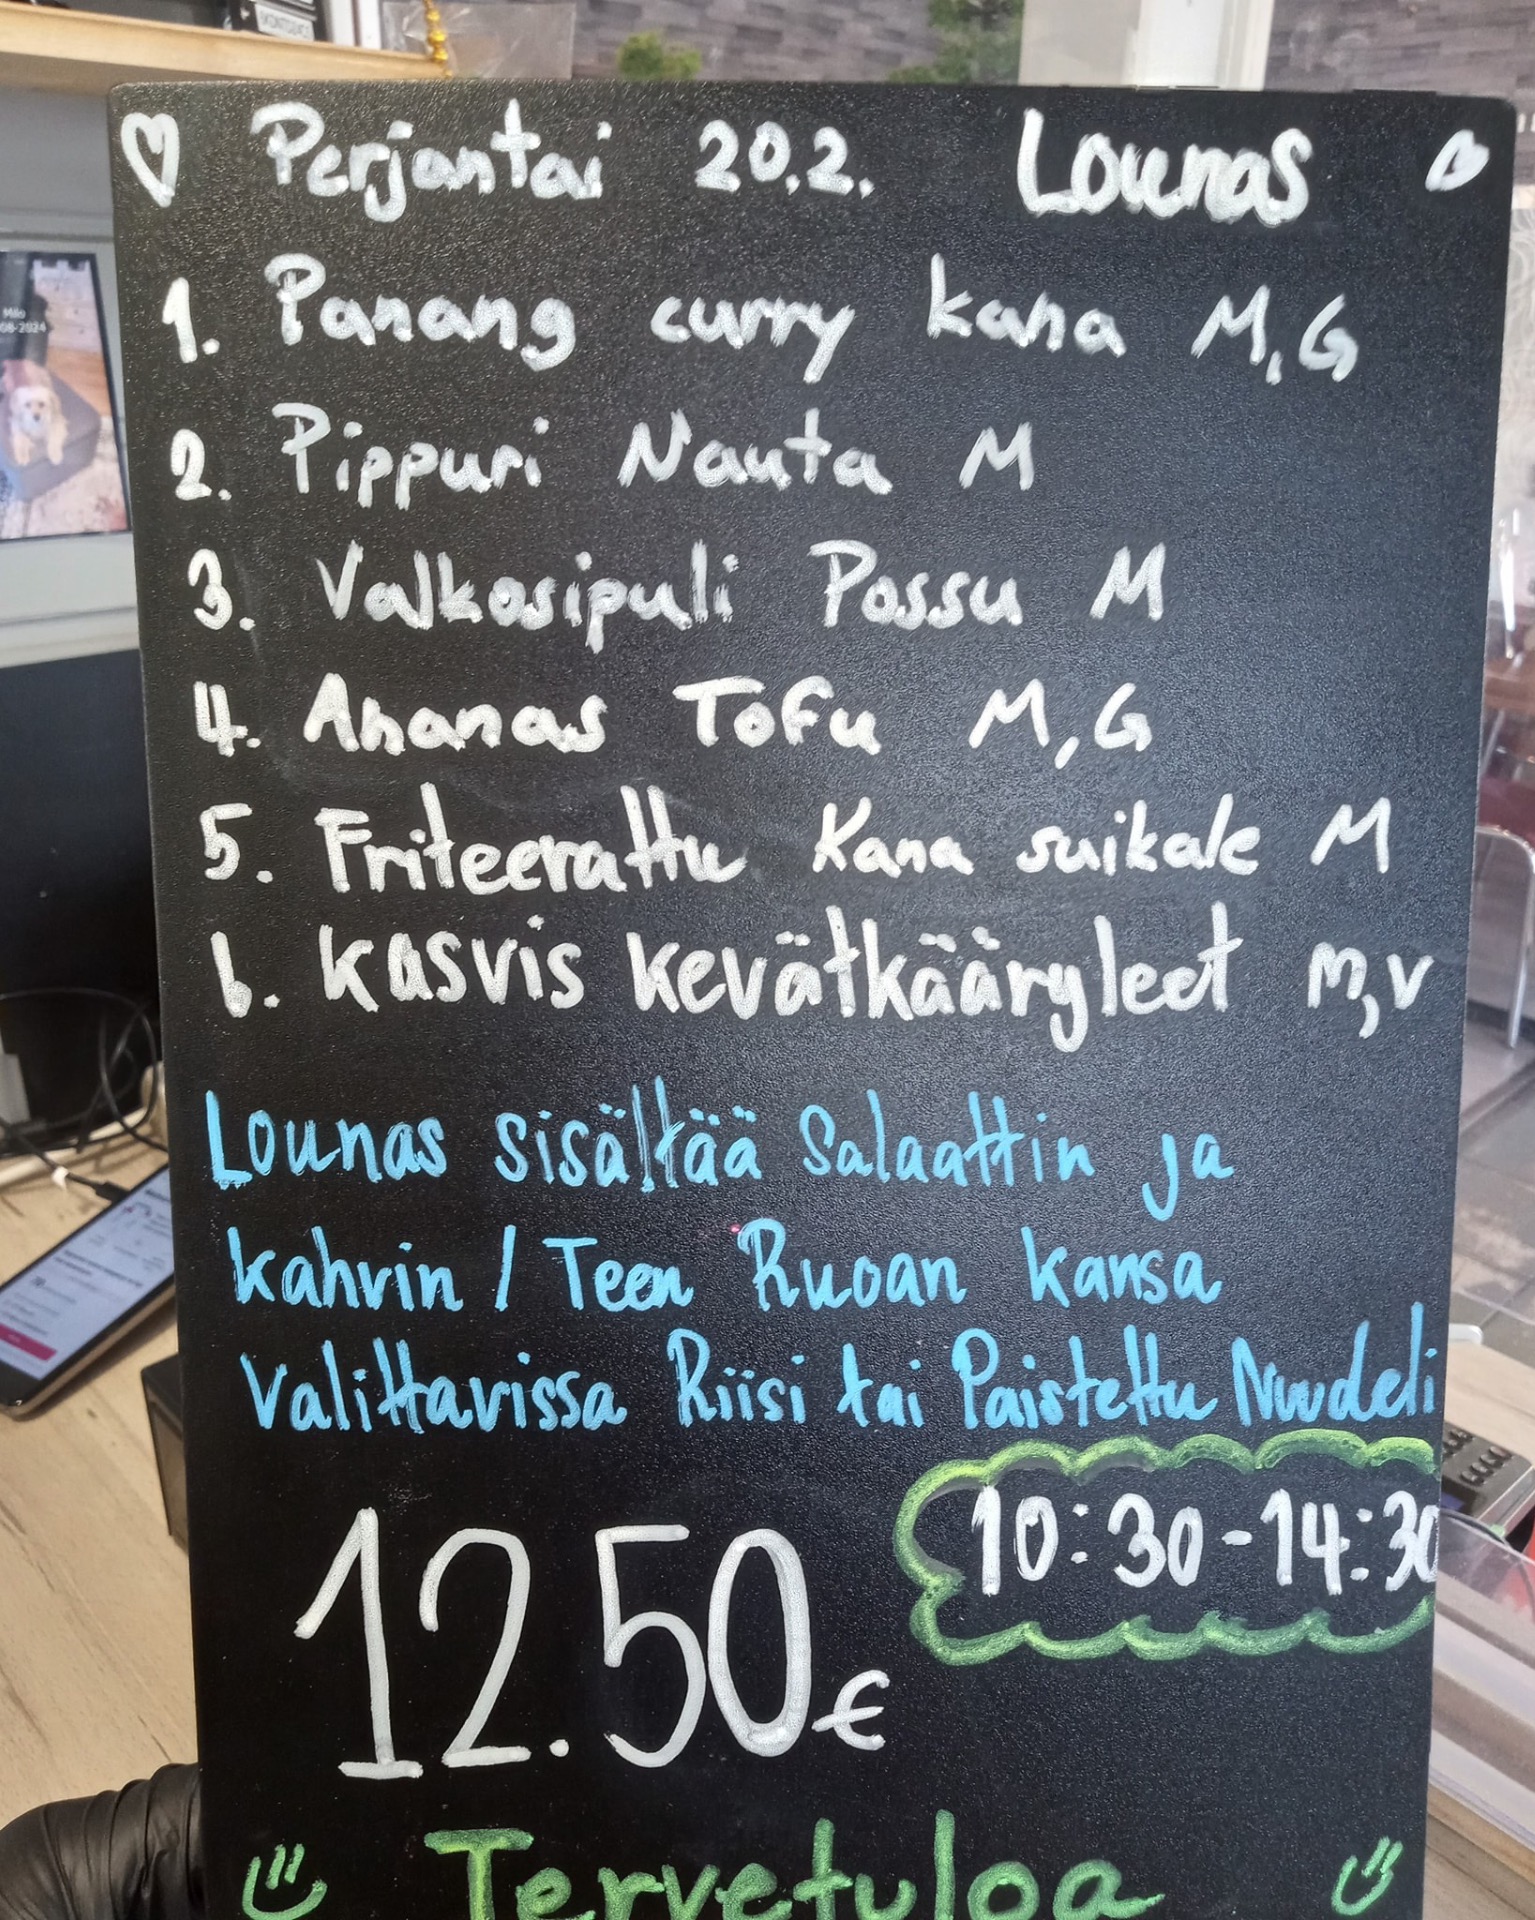 Perjantai 20.2. Lounas
1. Panang curry kana M,G
2. Pippuri Nauta M
3. Valkosipuli Possu M
4. Ananas Tofu M,G
5. Friteerattu Kana suikale M
6. Kasvis kevätkääryleet M,V
Lounas sisältää Salaattin ja
kahvin / Teen Ruoan kansa
valittavissa Riisi tai Paistettu Nuudeli
10:30-14:30
12.50€
Tervetuloa
Milo
08-2024